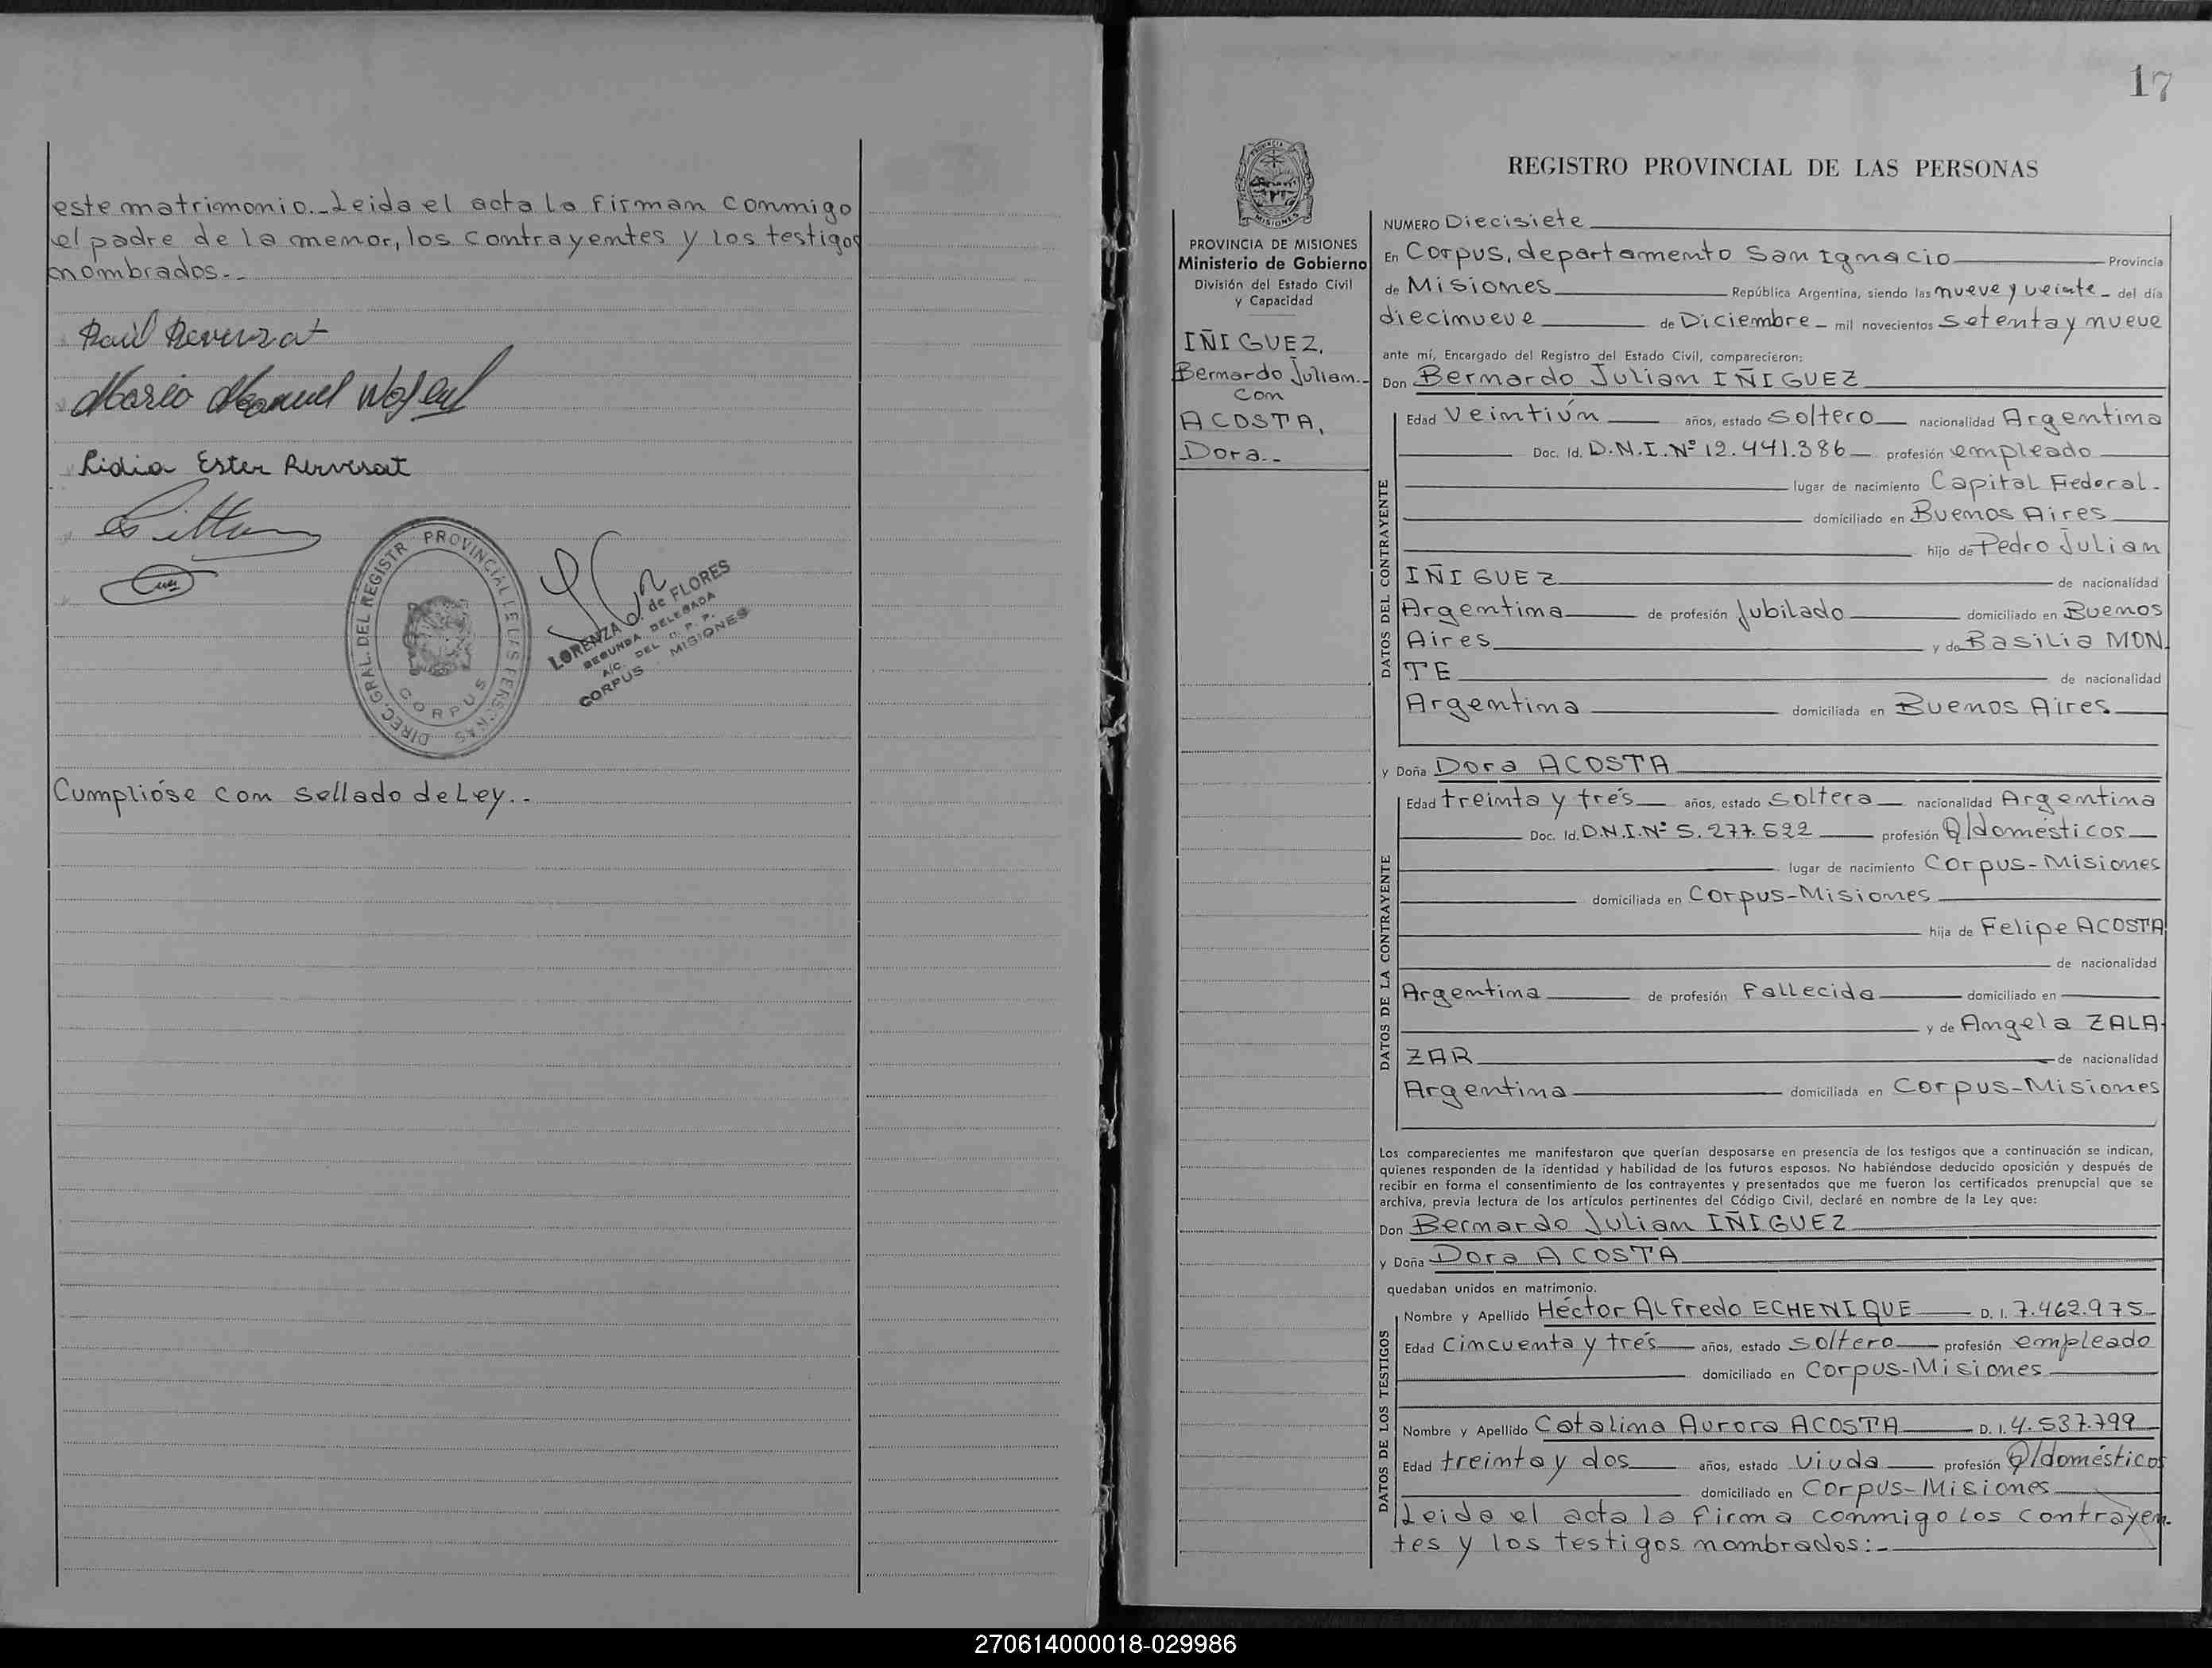 este matrimonio.-Leida el acta la firman conmigo
el padre de la menor, los contrayentes y los testigos
nombrados.-
Mario Manuel
Lidia Ester
DIREC. GRAL. DEL REGISTR PROVINCIAL DE LAS PERSONAS
CORPUS
LORENZA O. de FLORES
SEGUNDA DELEGADA
A/C. DEL O. P. P.
CORPUS MISIONES
Cumplióse con sellado de Ley.-
17
PROVINCIA
MISIONES
REGISTRO PROVINCIAL DE LAS PERSONAS
PROVINCIA DE MISIONES
Ministerio de Gobierno
División del Estado Civil
y Capacidad
IÑIGUEZ,
Bernardo Julian.-
con
ACOSTA,
Dora.-
NUMERO Diecisiete
En Corpus, departamento San Ignacio Provincia
de Misiones República Argentina, siendo las nueve y veinte del día
diecinueve de Diciembre mil novecientos setenta y nueve
ante mí, Encargado del Registro del Estado Civil, comparecieron:
Don Bernardo Julian IÑIGUEZ
DATOS DEL CONTRAYENTE
Edad Veintiún años, estado soltero nacionalidad Argentina
Doc. Id. D.N.I.Nº 12.441.386 profesión empleado
lugar de nacimiento Capital Federal.
domiciliado en Buenos Aires
hijo de Pedro Julian
IÑIGUEZ de nacionalidad
Argentina de profesión Jubilado domiciliado en Buenos
Aires y de Basilia MON
TE de nacionalidad
Argentina domiciliada en Buenos Aires
y Doña Dora ACOSTA
DATOS DE LA CONTRAYENTE
Edad treinta y trés años, estado soltera nacionalidad Argentina
Doc. Id. D.N.I.Nº 5.277.522 profesión Q/domésticos
lugar de nacimiento Corpus-Misiones
domiciliada en Corpus-Misiones
hija de Felipe ACOSTA
de nacionalidad
Argentina de profesión Fallecida domiciliado en
y de Angela ZALA-
ZAR de nacionalidad
Argentina domiciliada en Corpus-Misiones
Los comparecientes me manifestaron que querían desposarse en presencia de los testigos que a continuación se indican,
quienes responden de la identidad y habilidad de los futuros esposos. No habiéndose deducido oposición y después de
recibir en forma el consentimiento de los contrayentes y presentados que me fueron los certificados prenupcial que se
archiva, previa lectura de los artículos pertinentes del Código Civil, declaré en nombre de la Ley que:
Don Bernardo Julian IÑIGUEZ
y Doña Dora ACOSTA
quedaban unidos en matrimonio.
DATOS DE LOS TESTIGOS
Nombre y Apellido Héctor Alfredo ECHENIQUE D. I. 7.462.975
Edad Cincuenta y trés años, estado soltero profesión empleado
domiciliado en Corpus-Misiones
Nombre y Apellido Catalina Aurora ACOSTA D. I. 4.537.799
Edad treinta y dos años, estado viuda profesión Q/domésticos
domiciliado en Corpus-Misiones
Leida el acta la firma conmigo los contrayen-
tes y los testigos nombrados:-
270614000018-029986